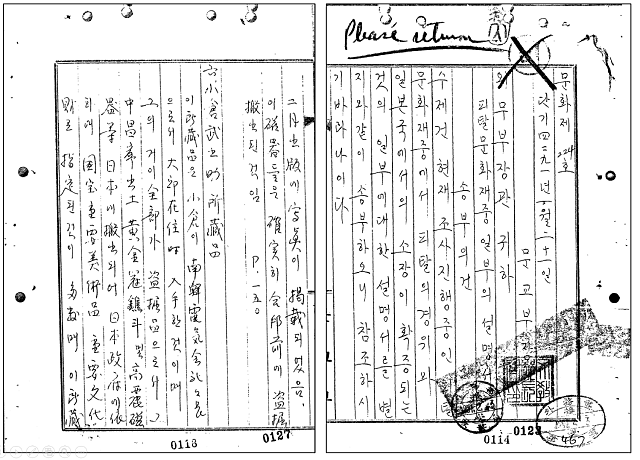 Please return
문화제 224호
단기 四二九一년 六월 二十一일
문교부장관
외무부장관 귀하
피탈문화재중 일부의 설명서
송부의 건
수제건 현재 조사 진행중인
문화재중에서 피탈의 경위와
일본국에서의 소장이 확증되는
것의 일부에 대한 설명서를 별
지와 같이 송부하오니 참조하시
기 바라나이다
0114
0123
467
二月出版에 寫眞이 揭載되었음.
이 磁器들은 確実히 合邦前에 盜掘
搬出된 것임 P.一五〇
六 小倉武之助 所藏品
이 所藏品은 小倉이 南鮮電気会社長
으로서 大邱在住時 入手한 것이며
그의 거이 全部가 盜掘品으로서
中昌寧出土 黃金冠 및 高麗磁
器等 日本에 搬出되어 日本政府에 依
하여 國宝重要美術品 重要文化
財로 指定된 것이 多数며 이 所藏
0118
0127